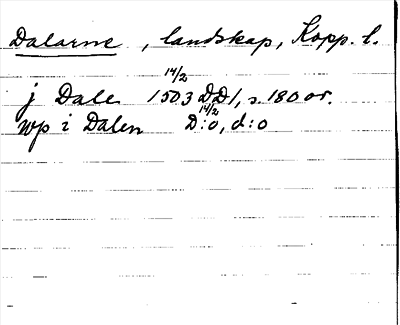 Dalarne, landskap, Kopp. l.
j Dale 1503 14/2 DD1, s. 180 or.
wp i Dalen 14/2 D:o, d:o